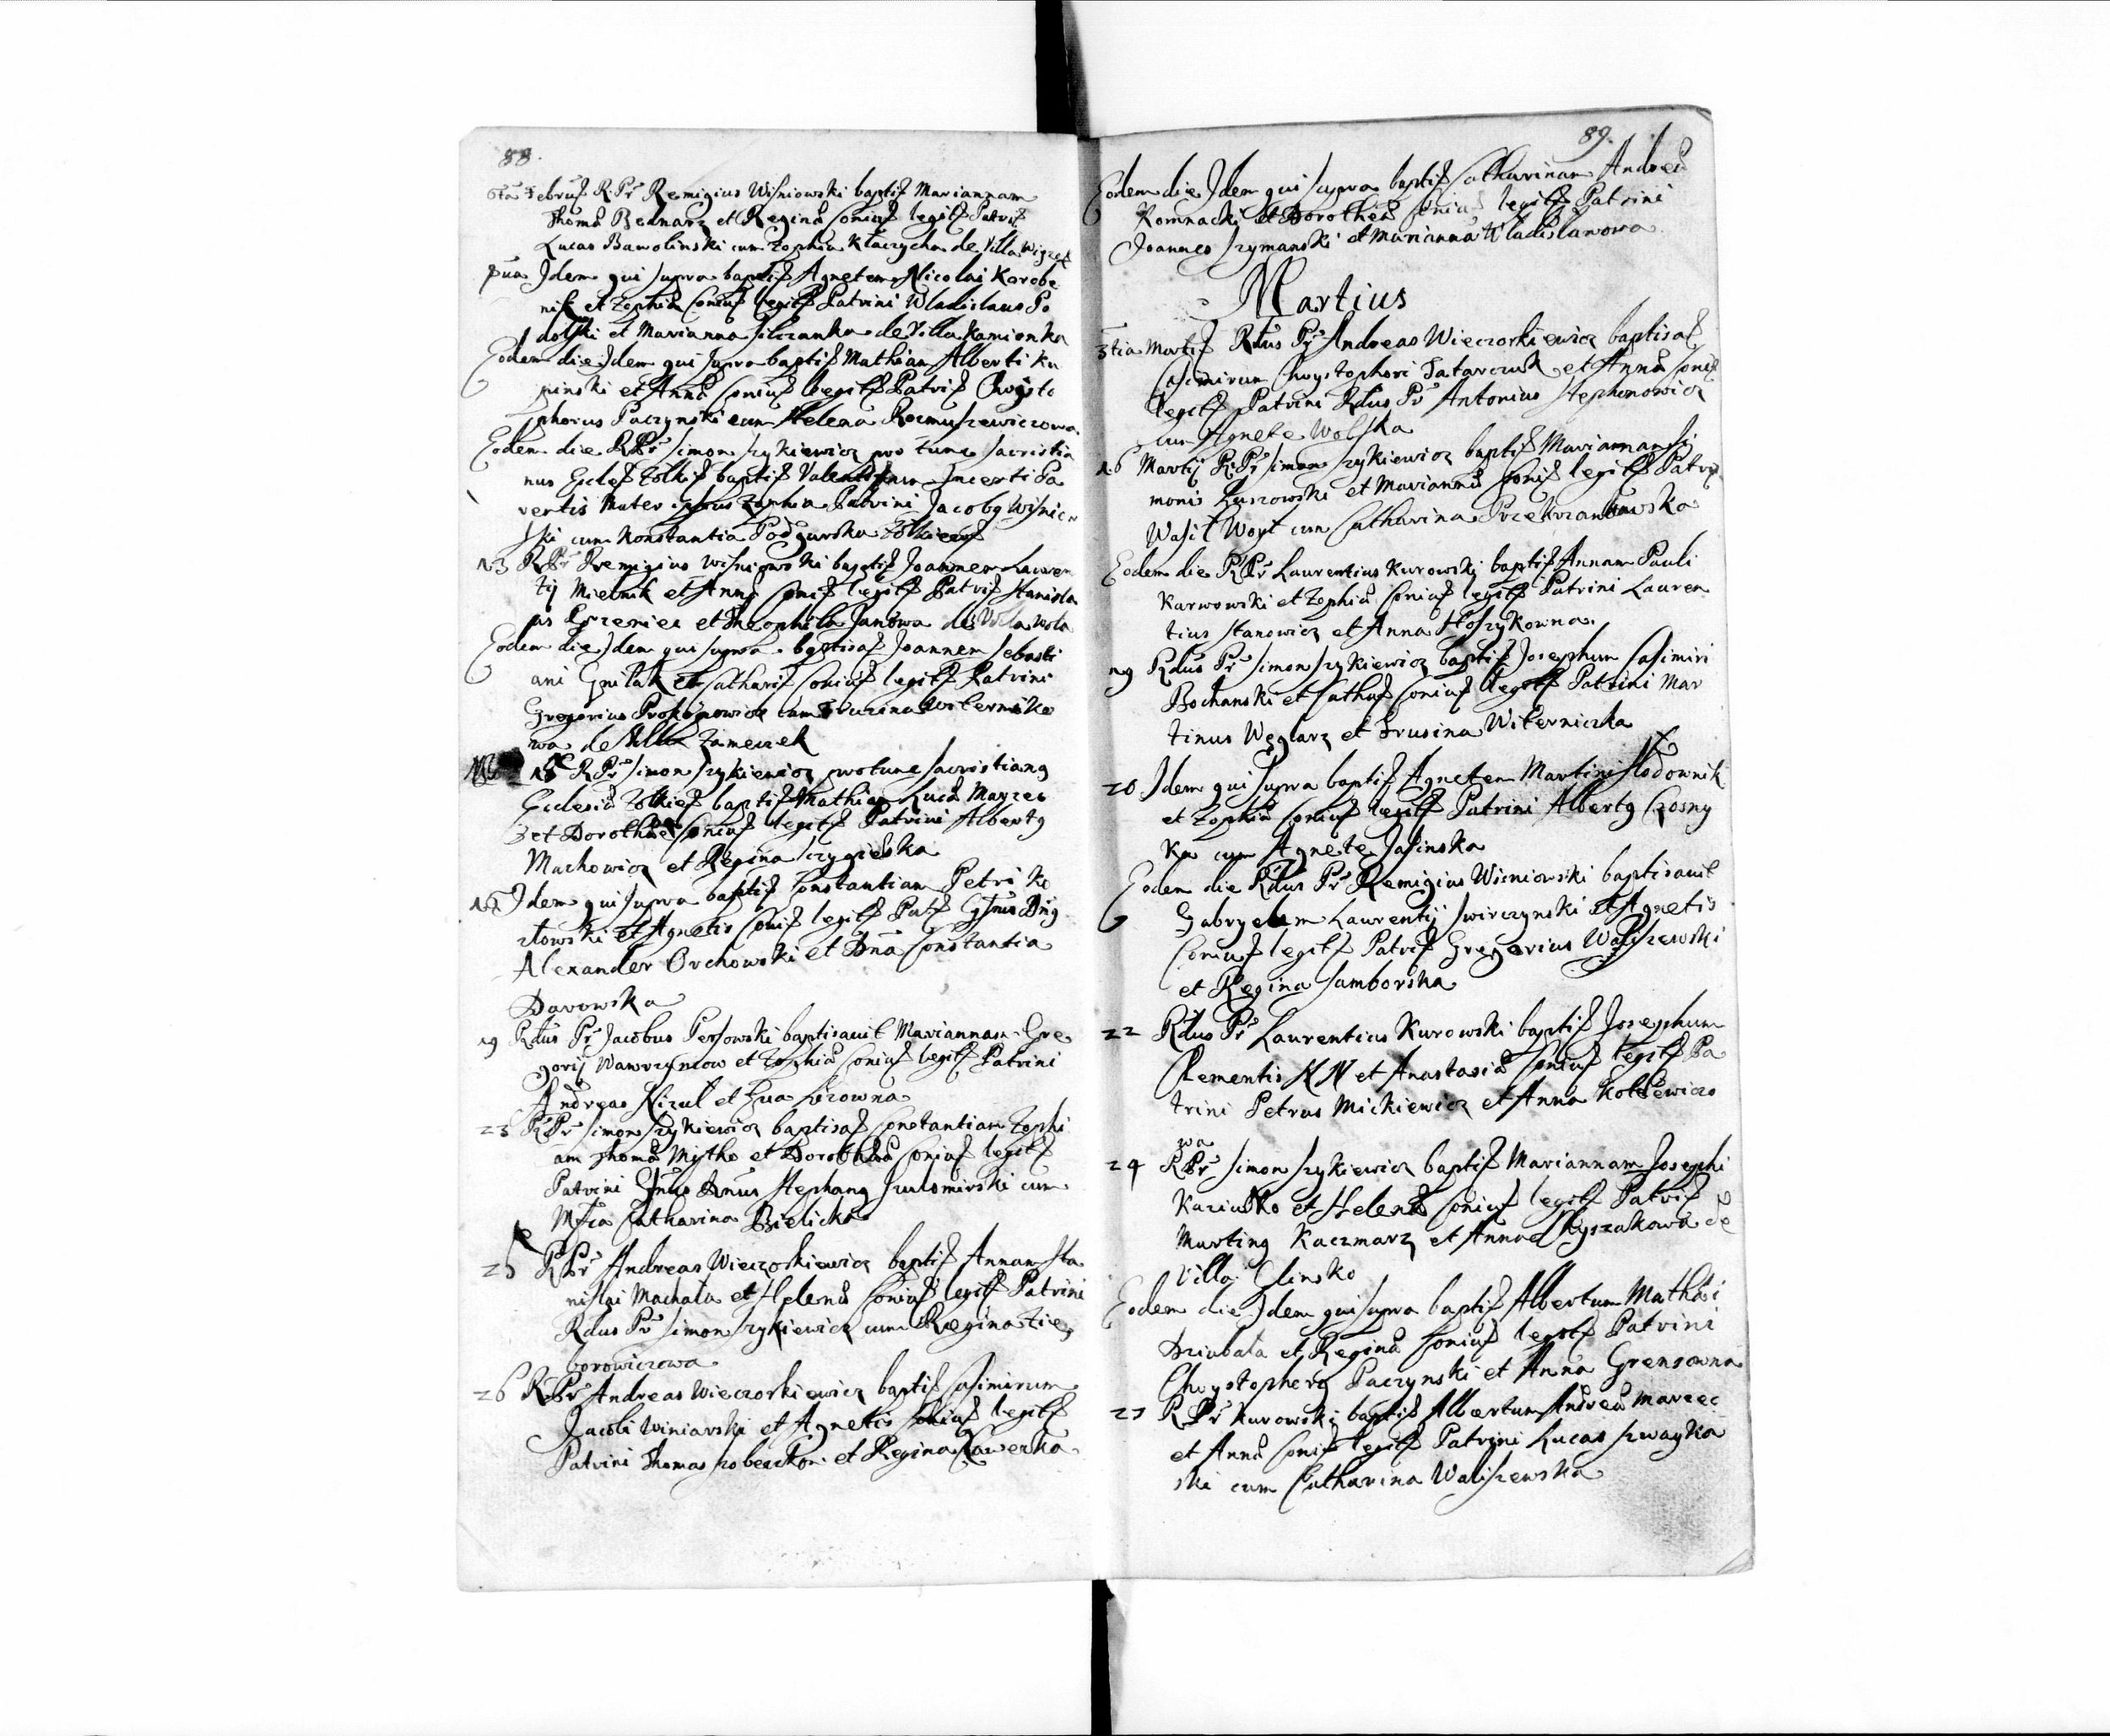 88.
6ta Februȷ R. Pr Remigius Wiſniowski baptiȷ Mariannam
Thomæ Bednarz et Reginæ Coniuȷ legitȷ Patriȷ
Lucas Bawolinski cum Zophia Kłaczycha de Villa
Idem qui supra baptiȷ Agnetem Nicolai Korobe
nik et Zophiæ Coniuȷ legitȷ Patrini Wladislaus Po
dolski et Marianna Hilczanka de Villa Kamionka
Eodem die Idem qui supra baptiȷ Mathiam Alberti Ku
pinski et Annæ Coniuȷ legitȷ Patriȷ Chrysto
phorus Paczynski cum Helena Rozmuszewiczowa
Eodem die R Pr Simon Szykiewicz pro tunc Sacristia
nus Eccleȷ Zolkiȷ baptiȷ Valentinum Incerti Pa
rentis Mater ipsius Zophia Patrini Jacobg Wiſniew
ski cum Konstantia Podgurska Zolkiew
13 R Pr Remigius Wiſniowski baptiȷ Joannem Lauren
tij Mielnik et Annæ Coniȷ legitȷ Patriȷ Stanisla
us et Theophila Janowa de Villa Wola
Eodem die Idem qui supra baptisaȷ Joannem Sebasti
ani Gnilak et Cathariȷ Coniuȷ legitȷ Patrini
Gregorius Prokopowicz cum Fruzina Witernicko
wa de Villa Zameczek
15 R Pr Simon Szykiewicz protunc Sacristiang
Eclesiæ Zolkieȷ baptiȷ Mathiam Lucæ Marzec
et Dorotheæ Coniuȷ legitȷ Patrini Albertg
Machowicz et Regina Szygielska
Idem qui supra baptiȷ Constantiam Petri Ko
złowski et Agnetis Coniȷ legitȷ Patȷ Gnsus Dng
Alexander Orchowski et Dna Constantia
Darowska
19 Rdus Pr Jacobus Persowski baptisauit Mariannam Gre
gorij Wawrzyncow et Zophiæ Coniuȷ legitȷ Patrini
Andreas Nizul et Eua
23 R Pr Simon Szykiewicz baptisaȷ Constantiam Zophi
am Thomæ Mytko et Dorotheæ Coniuȷ legitȷ
Patrini Gnsus Dnus Stephang cum
Mfca Catharina Bielicka
25 R Pr Andreas Wieczorkiewicz baptiȷ Annam Sta
nislai Machala et Helenæ Coniuȷ legitȷ Patrini
Rdus Pr Simon Szykiewicz cum Regina Zie
borowiczowa
26 R Pr Andreas Wieczorkiewicz baptiȷ Casimirum
Jacobi Winiarski et Agnetis Coniuȷ legitȷ
Patrini Thomas et Regina Cawerka
89.
Eodem die Idem qui supra baptiȷ Catharinam Andreæ
Komnacki et Dorotheæ Coniuȷ legitȷ Patrini
Joannes Szymanski et Marianna Wladislawowa
Martius
3tia Martiȷ Rdus Pr Andreas Wieczorkiewicz baptisaȷ
Casimirum Chrystophori Tatarczuk et Annæ Coniȷ
legitȷ Patrini Rdus Pr Antonius Stephanowicz
cum Agnete Wolska
16 Martij R. Pr Simon Szykiewicz baptiȷ Mariannam Si
monis Luszowski et Mariannæ Coniȷ legitȷ Patri
Wasil Woyt cum Catharina
Eodem die R Pr Laurentius Kurowski baptiȷ Annam Pauli
Karwowski et Zophiæ Coniuȷ legitȷ Patrini Lauren
tius Stanowicz et Anna Stoszykowna
19 Rdus Pr Simon Szykiewicz baptiȷ Josephum Casimiri
Bochanski et Cathaȷ Coniuȷ legitȷ Patrini Mar
tinus Węglarz et Frusina Witerniczka
20 Idem qui supra baptiȷ Agnetem Martini Slodownik
et Zophiæ Coniuȷ legitȷ Patrini Albertg Czosny
ka cum Agnete Jasinska
Eodem die Rdus Pr Remigius Wisniowski baptisauit
Gabryelem Laurentij Swirczynski et Agnetis
Coniuȷ legitȷ Patriȷ Gregorius Waliszewski
et Regina Samborska
22 Rdus Pr Laurentius Kurowski baptiȷ Josephum
Clementis N N et Anastasiæ Coniuȷ legitȷ Pa
trini Petrus Mickiewicz et Anna Kołtewiczo
wa
24 R Pr Simon Szykiewicz baptiȷ Mariannam Josephi
Kaziubko et Helenæ Coniuȷ legitȷ Patriȷ
Marting Kaczmarz et Anna Skyszakowa de
Villa Glinsko
Eodem die Idem qui supra baptiȷ Albertum Mathæi
Dziubala et Reginæ Coniuȷ legitȷ Patrini
Chrystopherg Paczynski et Anna Grensowna
27 R Pr Kurowski baptiȷ Albertum Andreæ Marzec
et Annæ Coniȷ legitȷ Patrini Lucas Szwayko
ski cum Catharina Waliszewska